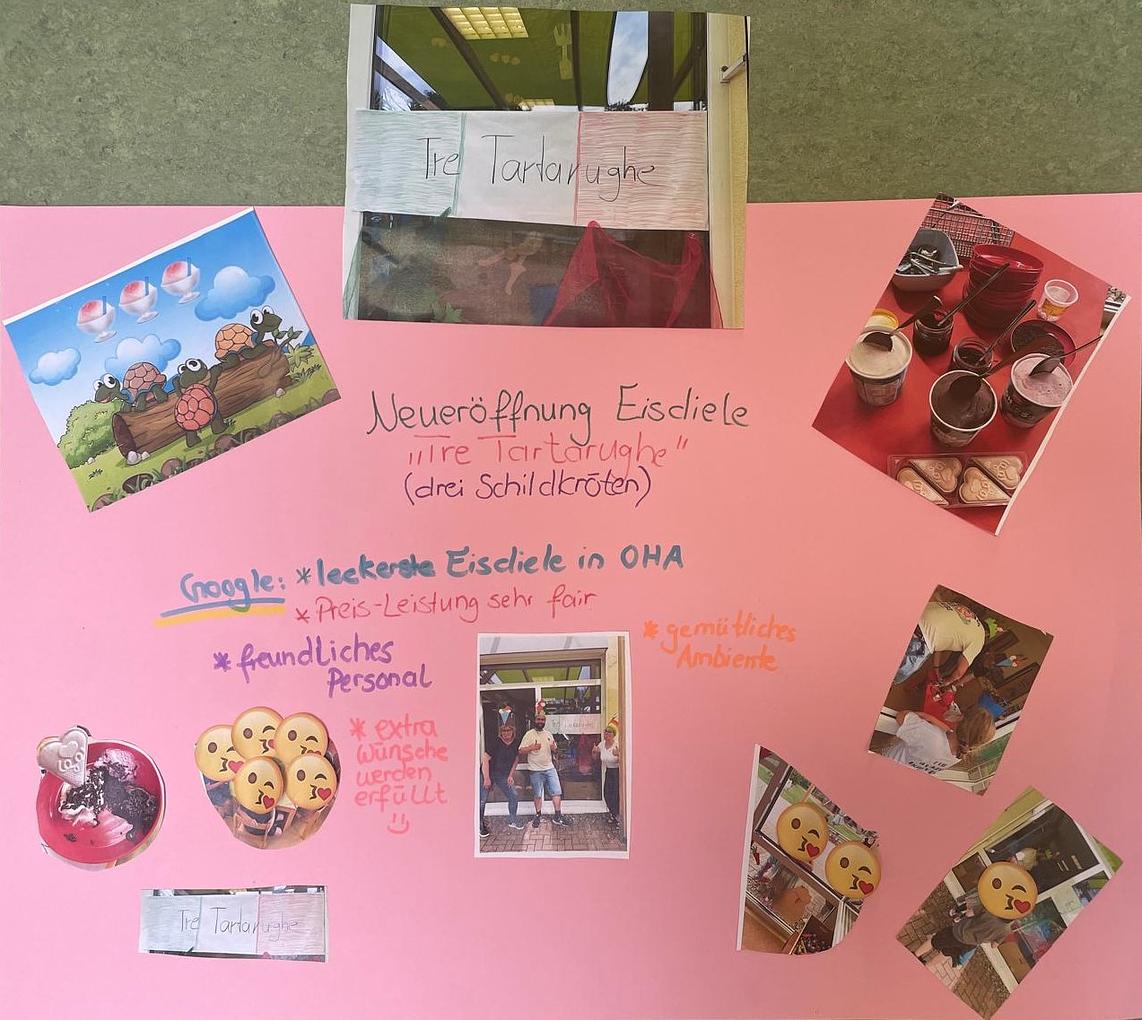 Tre Tartarughe
Neueröffnung Eisdiele
"Tre Tartarughe"
(drei Schildkröten)
Google: * leckerste Eisdiele in OHA
* Preis-Leistung sehr fair
* freundliches
Personal
* gemütliches
Ambiente
* extra
Wünsche
werden
erfüllt
Tre Tartarughe